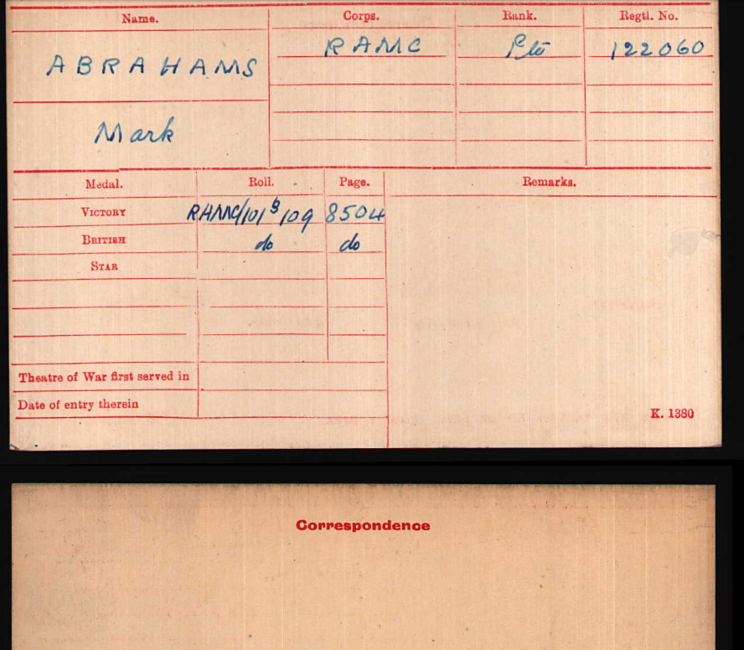 Name. Corps. Rank. Regtl. No.
ABRAHAMS RAMC Pte 122060
Mark
Medal. Roll. Page. Remarks.
VICTORY RAMC/101B/109 8504
BRITISH do do
STAR
Theatre of War first served in
Date of entry therein
K. 1380
Correspondence